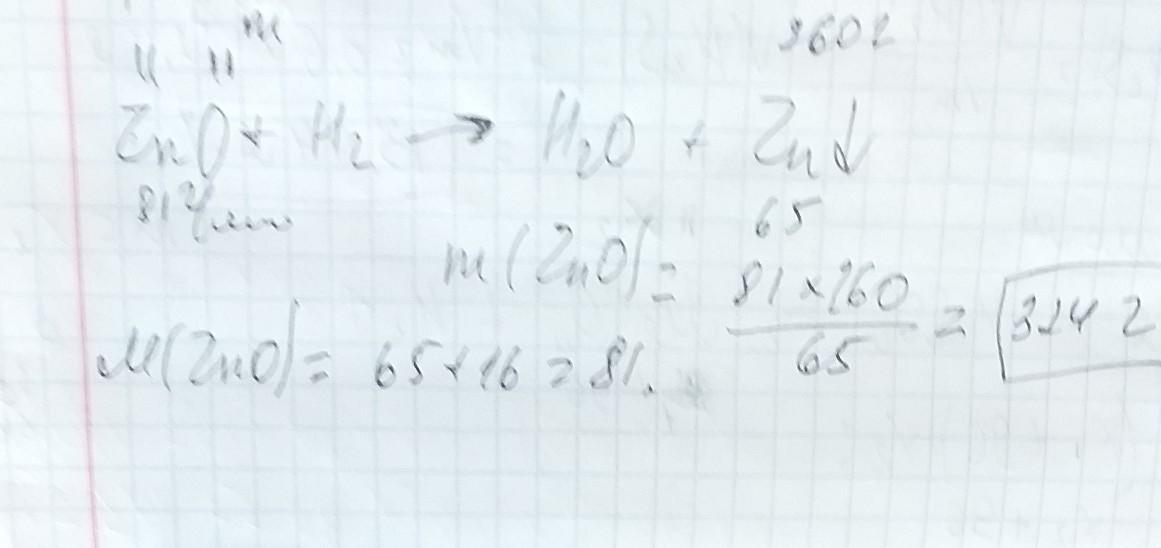 m 260 г
" "
ZnO + H₂ → H₂O + Zn↓
81 г/моль 65
m(ZnO) = 81 × 260 / 65 = 324 г
M(ZnO) = 65 + 16 = 81.